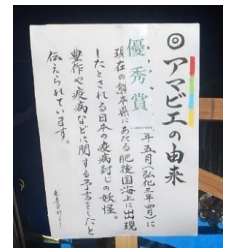 ◎アマビエの由来
優秀賞
年五月(弘化三年四月)に
現在の熊本県にあたる肥後国海上に出現
したとされる日本の疫病封じの妖怪。
豊作や疫病などに関する予言をしたと
伝えられています。